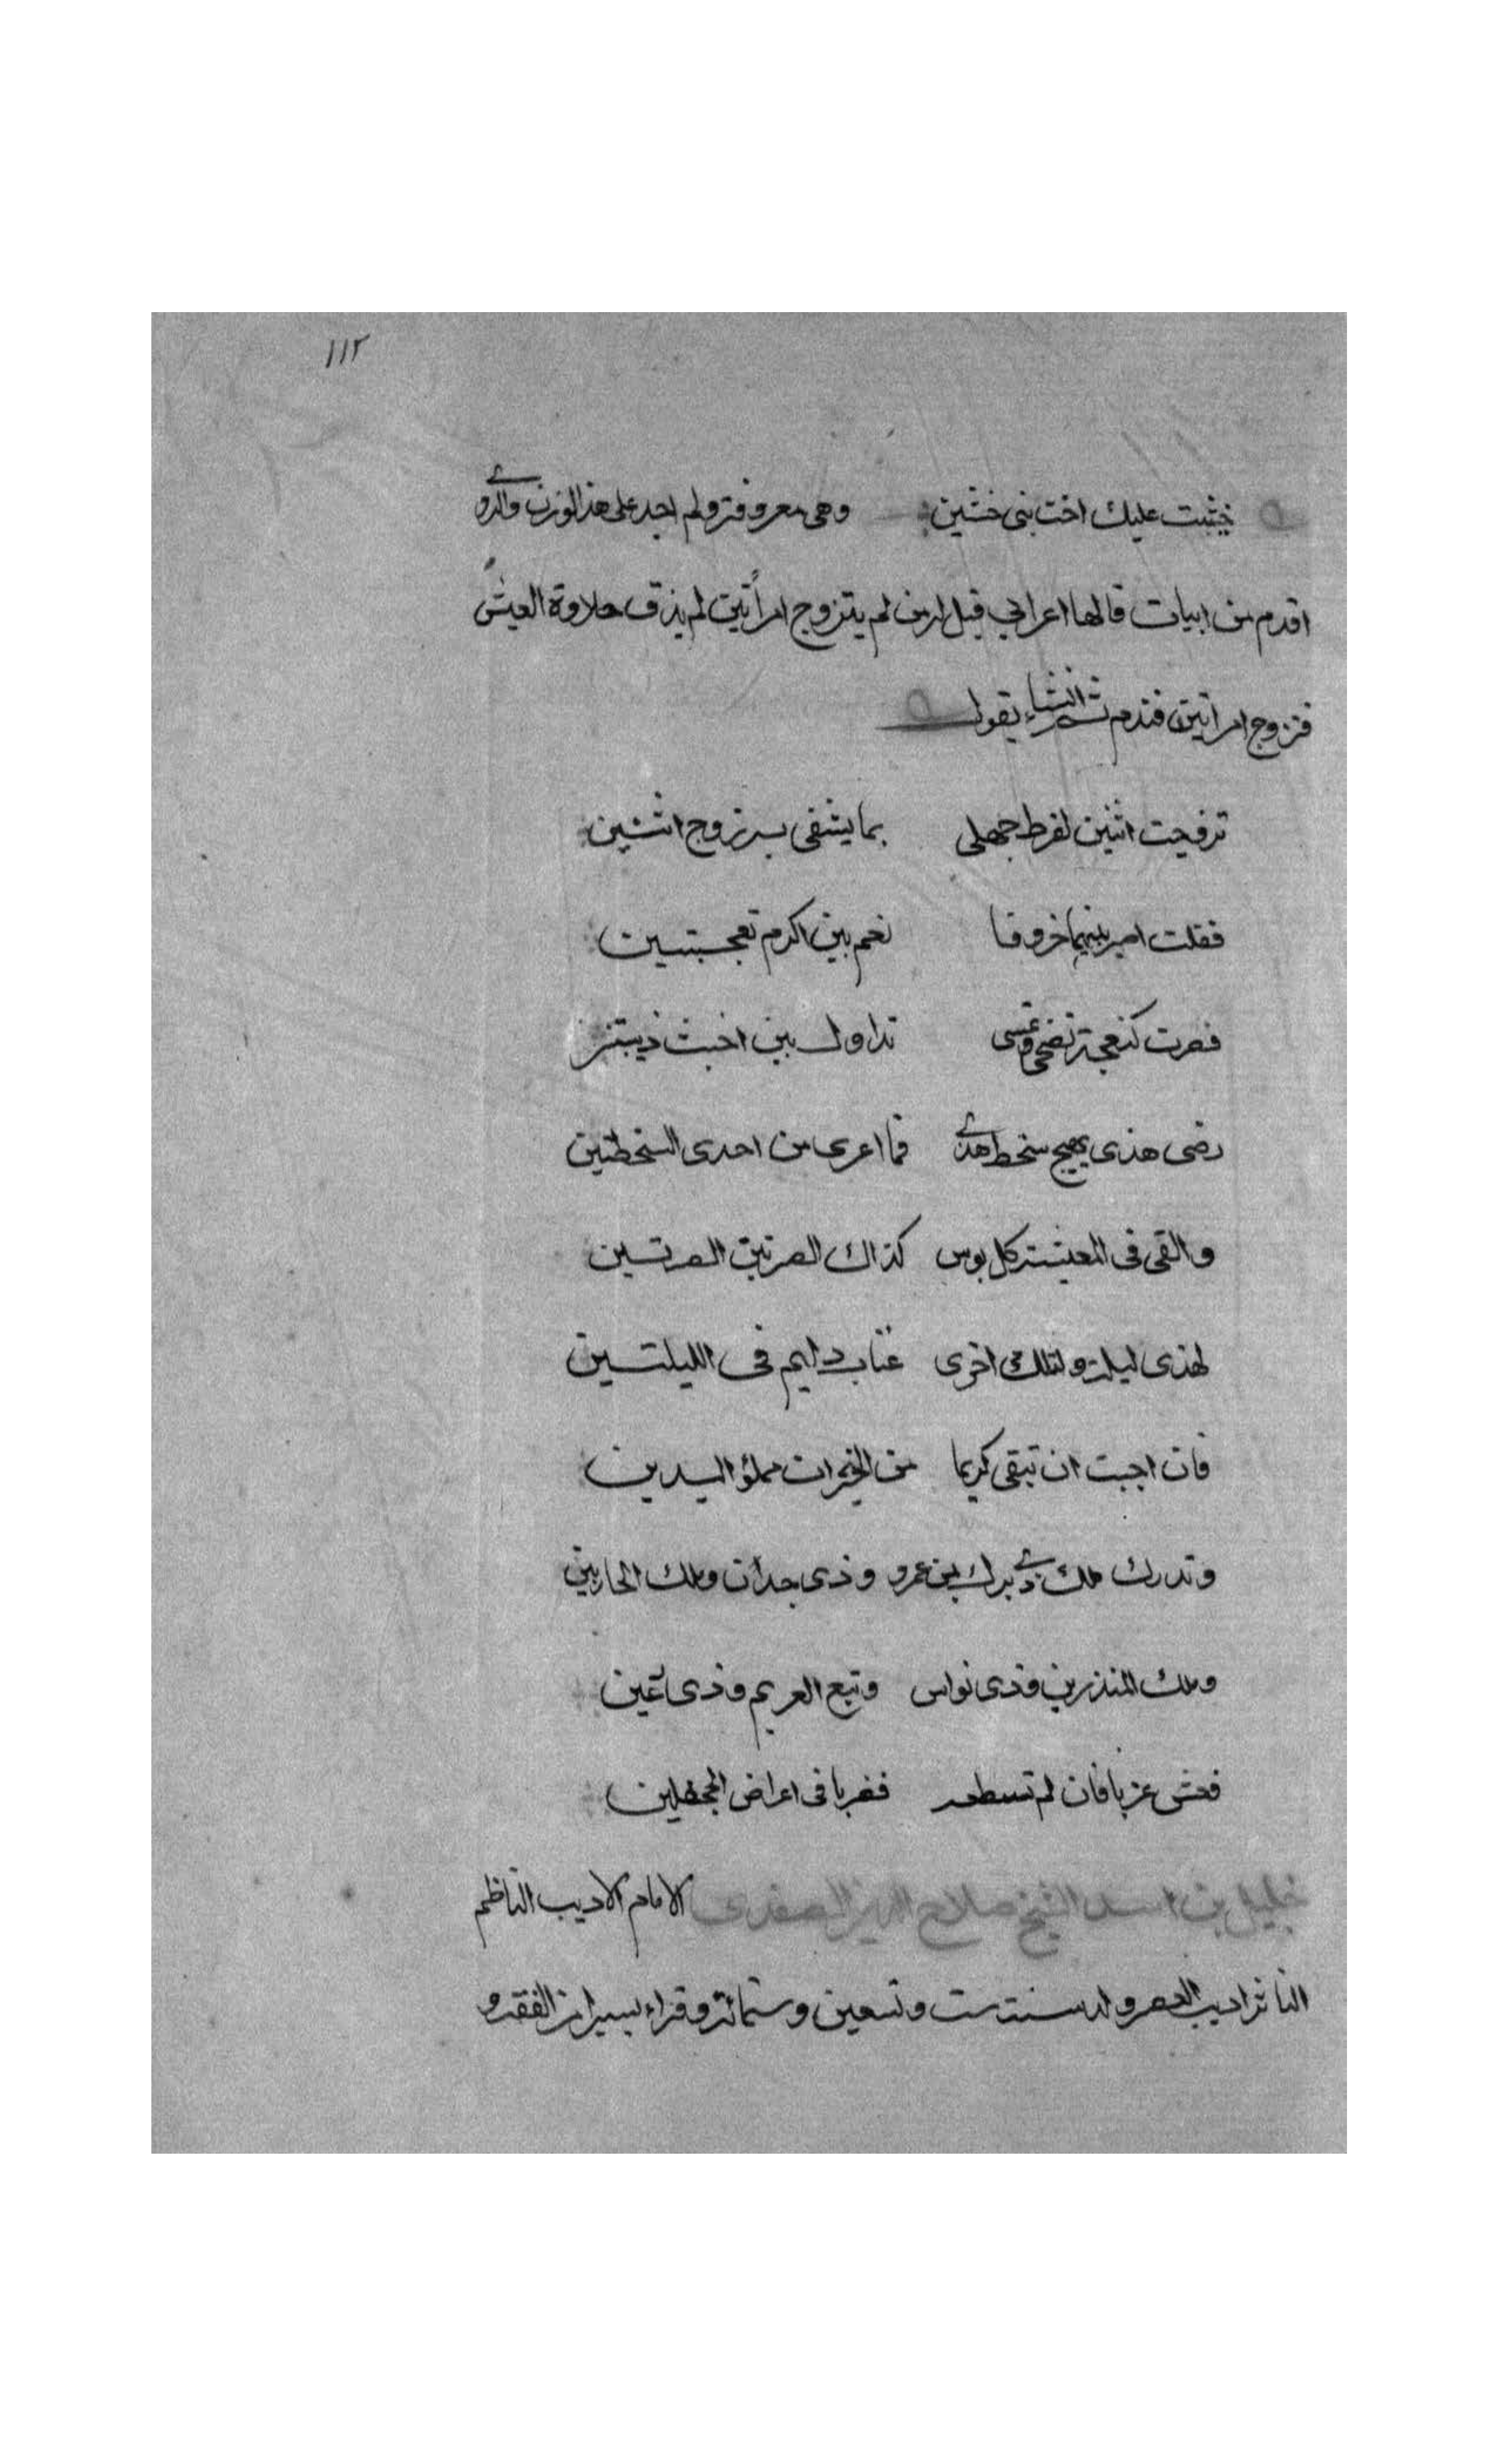 ١١٢
خشيت عليك اخت بنى خشين وهى معروفة ولم اجد على هذا الوزن والروي
اقدم من ابيات قالها اعرابي قيل له من لم يتزوج امرأتين لم يذق حلاوة العيش
فتزوج امراتين فندم ثم انشاء يقول
تزوجت اثنين لفرط جهلى بما يشقى به زوج اثنتين
فقلت اصير بينهما خروفا نعم بين اكرم نعجتين
فصرت كنعجة تضحى وتمسى تداول بين اخبث ذيبتين
رضى هذى يهيج سخط هذي فما اعرى من احدى السخطتين
والقى فى المعيشة كل بوس كذاك الضر بين الضرتين
لهذى ليلة ولتلك اخرى عتاب دايم فى الليلتين
فان احببت ان تبقى كريما من الخيرات مملؤ اليدين
وتدرك ملك ذي يزن بن عمرو وذى جدن وملك الحارثين
وملك المنذرين وذى نواس وتبع العريم وذى رعين
فعش عزبا فان لم تسطعه فضربا فى اعراض الجحفلين
خليل بن ايبك الشيخ صلاح الدين الصفدى الامام الاديب الناظم
الناثر اديب العصر ولد سنة ست وتسعين وستمائة وقراء يسيرا من الفقه و